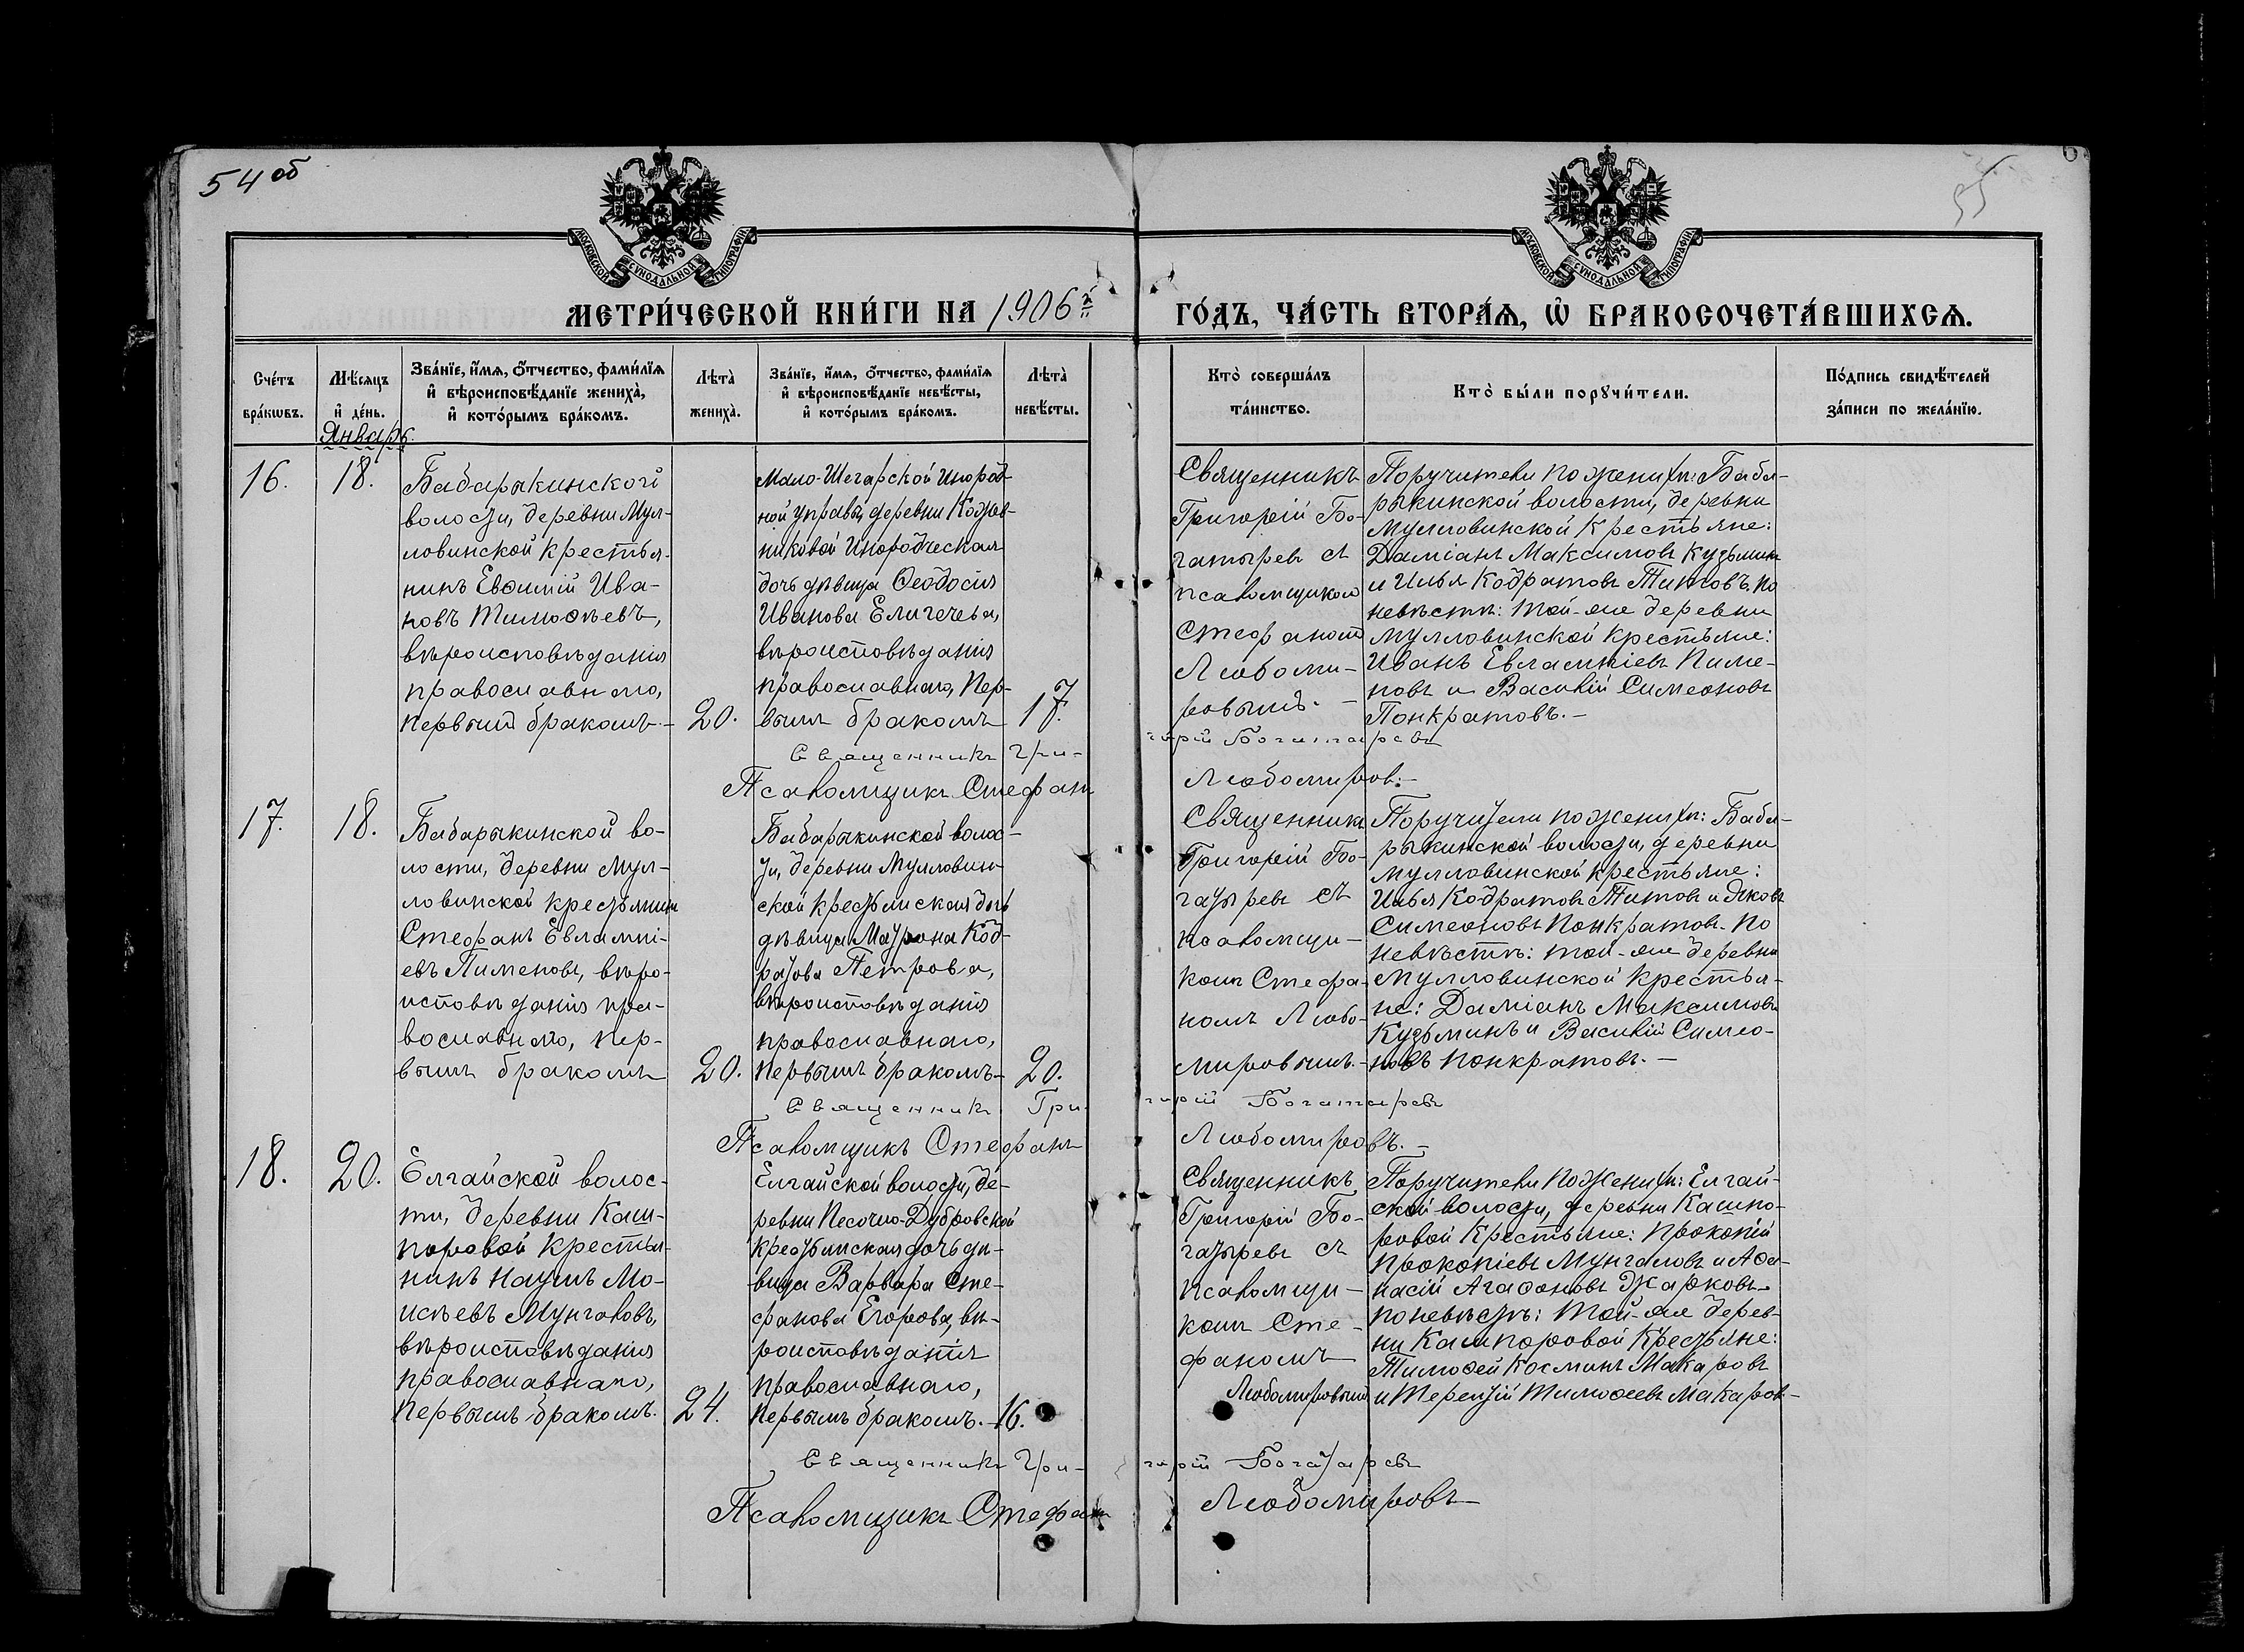 54 об
55
МОСКОВСКОЙ СѴНОДАЛЬНОЙ ТИПОГРАФІИ
МОСКОВСКОЙ СѴНОДАЛЬНОЙ ТИПОГРАФІИ
МЕТРИ́ЧЕСКОЙ КНИ́ГИ НА 1906й
ГО́ДЪ, ЧА́СТЬ ВТОРА́Ѧ, Ѡ҆ БРАКОСОЧЕТА́ВШИХСѦ.
Сче́тъ
бра́кѡвъ.
Мѣ́сяцъ
и҆ де́нь.
Январь.
Зва́нїе, и҆́мѧ, о҆́тчество, фами́лїѧ
и҆ вѣроисповѣ́данїе жениха̀,
и҆ кото́рымъ бра́комъ.
Лѣта̀
жениха̀.
Зва́нїе, и҆́мѧ, о҆́тчество, фами́лїѧ
и҆ вѣроисповѣ́данїе невѣ́сты,
и҆ кото́рымъ бра́комъ.
Лѣта̀
невѣ́сты.
Кто̀ соверша́лъ
та́инство.
Кто̀ бы́ли порꙋчи́тели.
По́дпись свидѣ́телей
за́писи по жела́нїю.
16.
18.
Бабарыкинской
волости, деревни Мул-
ловинской крестья-
нинъ Евѳимій Ива-
новъ Тимоѳѣевъ,
вѣроисповѣданія
православнаго,
первымъ бракомъ.-
20.
Мало-Шегарской Инород-
ной управы, деревни Кожев-
никовой Инородческая
дочь дѣвица Ѳеодосія
Иванова Елигечева,
вѣроисповѣданія
православнаго, пер-
вымъ бракомъ
17.
Священникъ
Григорій Бо-
гатыревъ съ
псаломщикомъ
Стефаномъ
Любоми-
ровымъ. -
Поручители по женихѣ: Баба-
рыкинской волости, деревни
Мулловинской крестьяне:
Даміанъ Максимовъ Кузьминъ
и Илья Кодратовъ Титовъ. По
невѣстѣ: той-же деревни
Мулловинской крестьяне:
Иванъ Евлампіевъ Пиме-
новъ и Василій Симеоновъ
Понкратовъ. -
Священникъ Гри-
горій Богатыревъ
Псаломщикъ Стефанъ
Любомиров. -
17.
18.
Бабарыкинской во-
лости, деревни Мул-
ловинской крестьянинъ
Стефанъ Евлампі-
евъ Пименовъ, вѣро-
исповѣданія пра-
вославнаго, пер-
вымъ бракомъ
20.
Бабарыкинской волос-
ти, деревни Мулловин-
ской крестьянская дочь
дѣвица Матрона Код-
ратова Петрова,
вѣроисповѣданія
православнаго,
первымъ бракомъ-
20.
Священникъ
Григорій Бо-
гатыревъ съ
псаломщи-
комъ Стефа-
номъ Любо-
мировымъ.-
Поручители по женихѣ: Баба-
рыкинской волости, деревни
Мулловинской крестьяне:
Илья Кодратовъ Титовъ и Яковъ
Симеоновъ Понкратовъ. По
невѣстѣ: той-же деревни
Мулловинской крестья-
не: Даміанъ Максимовъ
Кузьминъ и Василій Симео-
новъ Понкратовъ. -
Священникъ Гри-
горій Богатыревъ
Псаломщикъ Стефанъ
Любомировъ. -
18.
20.
Елгайской волос-
ти, деревни Каш-
поровой крестья-
нинъ Наумъ Мо-
исѣевъ Мунгаловъ,
вѣроисповѣданія
православнаго,
первымъ бракомъ.
24.
Елгайской волости, де-
ревни Песочно-Дубровской
крестьянская дочь дѣ-
вица Варвара Сте-
фанова Егорова, вѣ-
роисповѣданія
православнаго,
первымъ бракомъ. -
16.
Священникъ
Григорій Бо-
гатыревъ съ
псаломщи-
комъ Сте-
фаномъ
Любомировымъ
Поручители по женихѣ: Елгай-
ской волости, деревни Кашпо-
ровой крестьяне: Прокопій
Прокопіевъ Мунгаловъ и Аѳа-
насій Агаѳоновъ Жарковъ.
по невѣстѣ: той-же дерев-
ни Кашпоровой крестьяне:
Тимоѳей Косминъ Макаровъ
и Терентій Тимоѳеевъ Макаров-
Священникъ Гри-
горій Богатыревъ
Псаломщикъ Стефанъ
Любомировъ